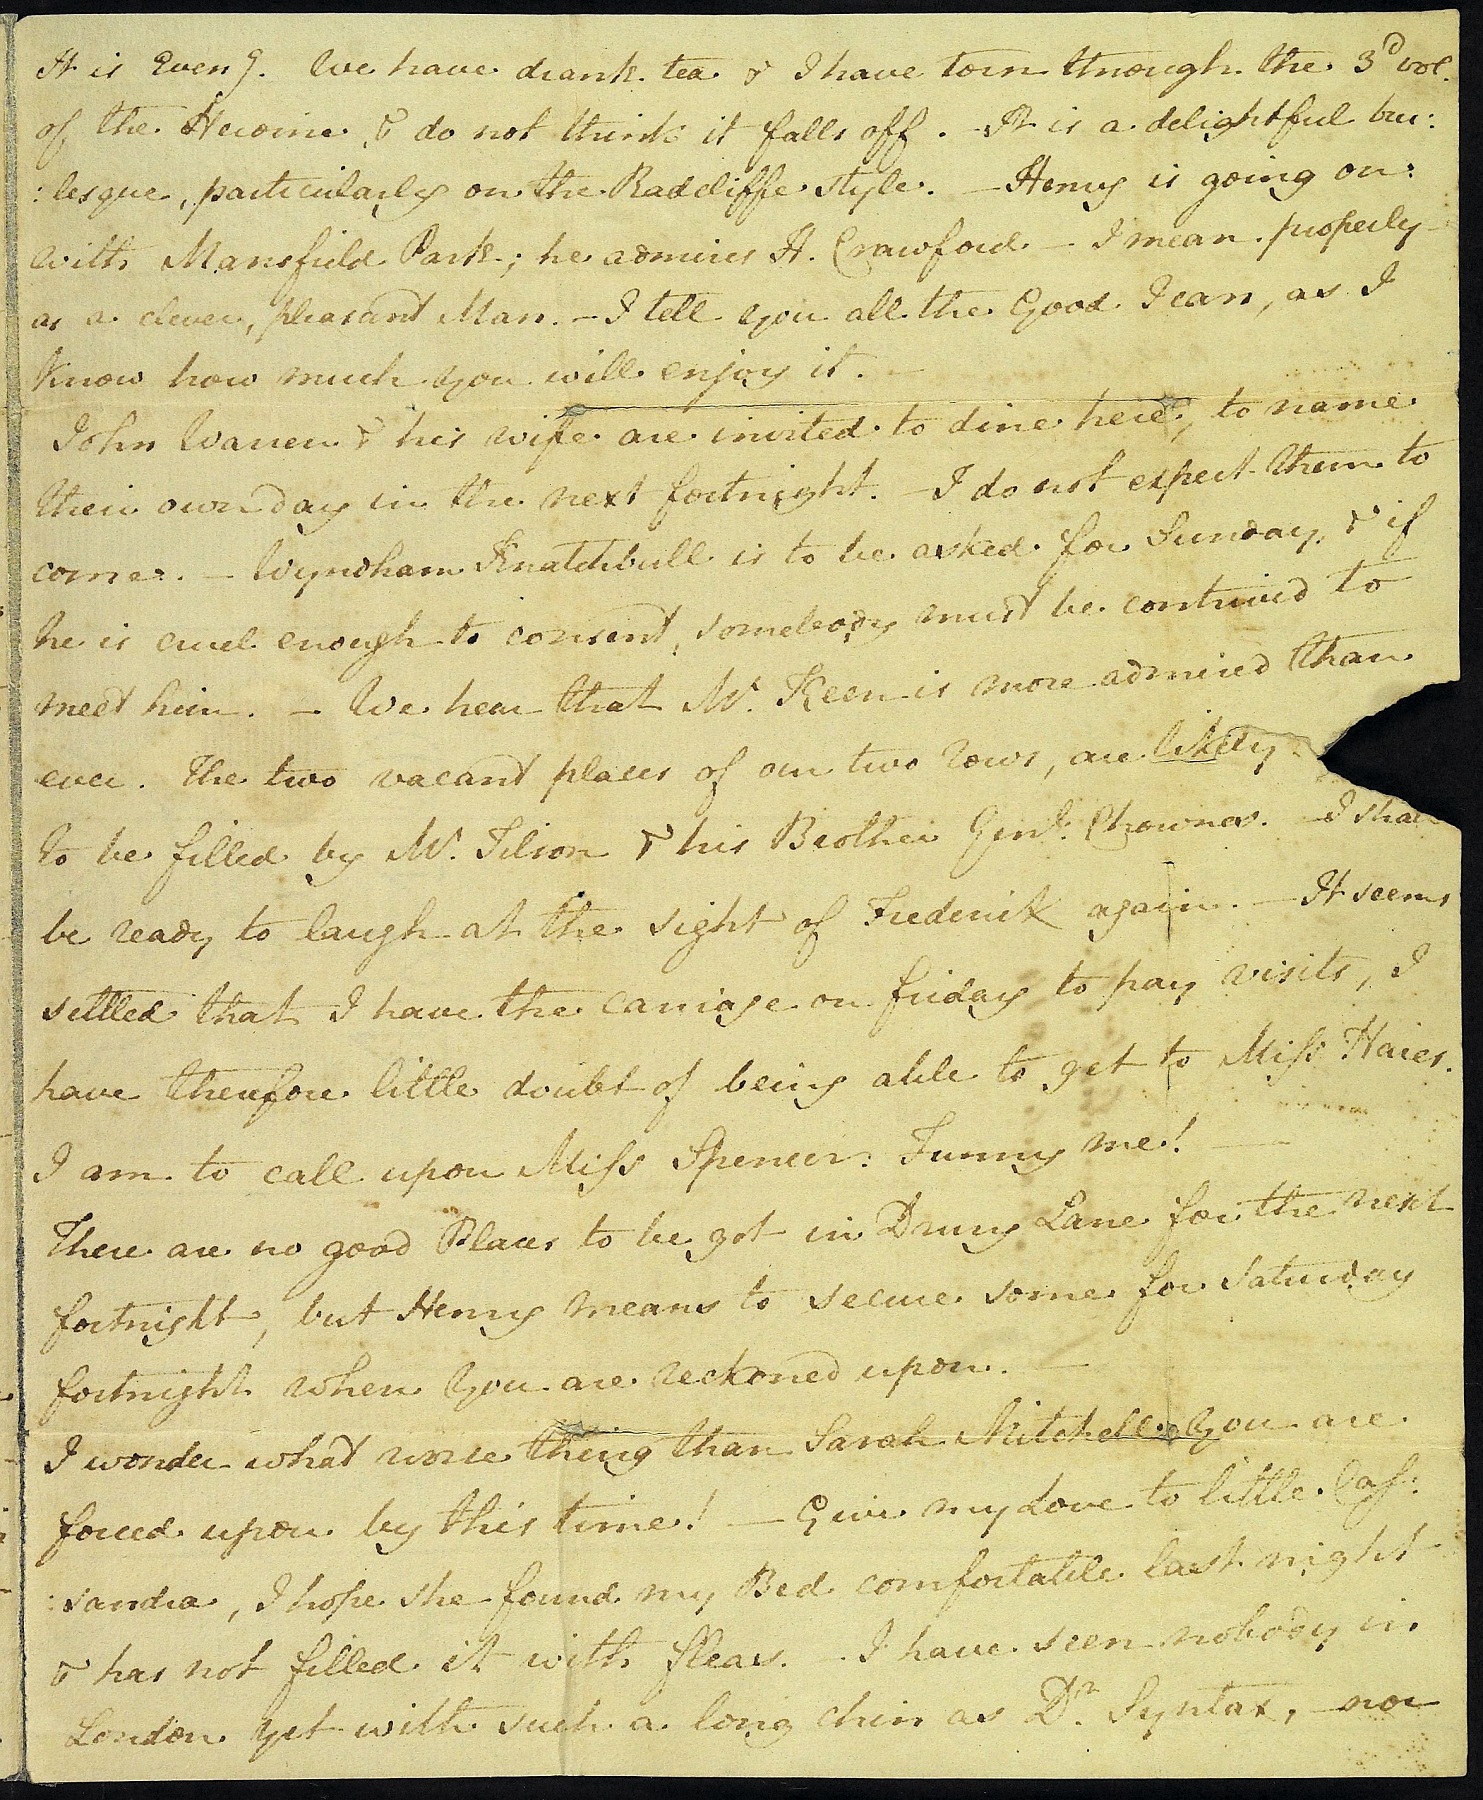 It is Eveng. We have drank tea & I have torn through the 3d vol.
of the Heroine, & do not think it falls off. – It is a delightful bur:
:lesque, particularly on the Radcliffe style. – Henry is going on
with Mansfield Park; he admires H. Crawford – I mean properly –
as a clever, pleasant Man. – I tell you all the Good I can, as I
know how much you will enjoy it. –
John Warren & his wife are invited to dine here, to name
their own day in the next fortnight. – I do not expect them to
come. – Wyndham Knatchbull is to be asked for Sunday, & if
he is cruel enough to consent, somebody must be contrived to
meet him. – We hear that Mr. Keen is more admired than
ever. The two vacant places of our two rows, are likely
to be filled by Mr. Tilson & his Brother Genl. Chownes. – I shall
be ready to laugh at the sight of Frederick again. – It seems
settled that I have the carriage on friday to pay visits, I
have therefore little doubt of being able to get to Miss Hares.
I am to call upon Miss Spencer: Funny me! –
There are no good Places to be got in Drury Lane for the next
fortnight, but Henry means to secure some for Saturday
fortnight when You are reckoned upon. –
I wonder what worse thing than Sarah Mitchell You are
forced upon by this time! – Give my Love to little Cass:
:sandra, I hope she found my Bed comfortable last night
& has not filled it with fleas. – I have seen nobody in
London yet with such a long chin as Dr. Syntax, nor